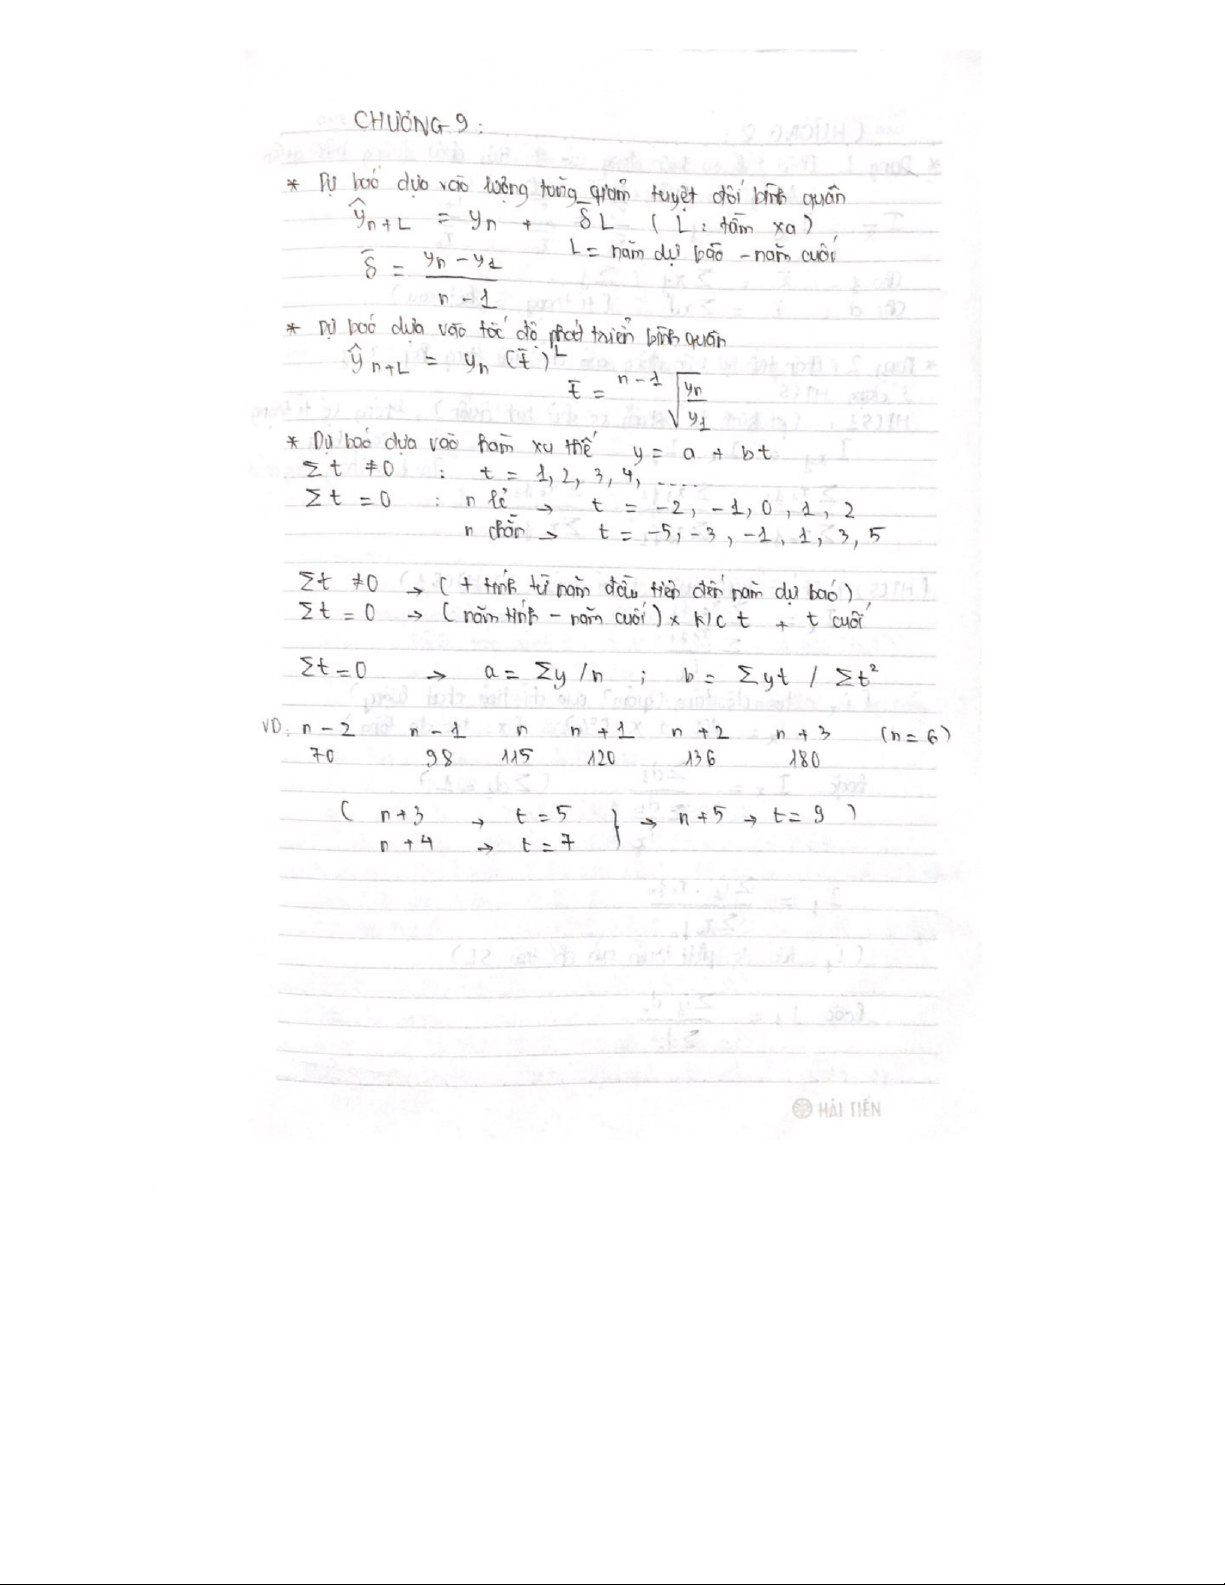 CHƯƠNG 9 :
* Dự báo dựa vào lượng tăng_giảm tuyệt đối bình quân
ŷn+L = yn + δ̄ L ( L : tầm xa )
L = năm dự báo - năm cuối
δ̄ = (yn - y1) / (n - 1)
* Dự báo dựa vào tốc độ phát triển bình quân
ŷn+L = yn (t̄)^L
t̄ = ⁿ⁻¹√(yn / y1)
* Dự báo dựa vào hàm xu thế y = a + bt
Σt ≠ 0 : t = 1, 2, 3, 4, ....
Σt = 0 : n lẻ → t = -2, -1, 0, 1, 2
n chẵn → t = -5, -3, -1, 1, 3, 5
Σt ≠ 0 → ( + tính từ năm đầu tiên đến năm dự báo )
Σt = 0 → ( năm tính - năm cuối ) x k/c t + t cuối
Σt = 0 → a = Σy / n ; b = Σyt / Σt²
VD: n - 2 n - 1 n n + 1 n + 2 n + 3 (n = 6)
70 98 115 120 136 180
( n+3 → t = 5 } → n+5 → t = 9 )
n+4 → t = 7
HẢI TIẾN